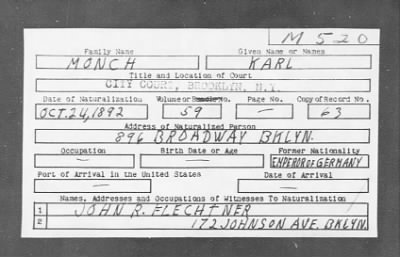 M 520
Family Name Given Name or Names
MONCH KARL
Title and Location of Court
CITY COURT, BROOKLYN, N.Y.
Date of Naturalization Volume or Bundle No. Page No. Copy of Record No.
OCT. 24, 1892 59 — 63
Address of Naturalized Person
896 BROADWAY BKLYN.
Occupation Birth Date or Age Former Nationality
— — EMPEROR OF GERMANY
Port of Arrival in the United States Date of Arrival
— —
Names, Addresses and Occupations of Witnesses To Naturalization
1 JOHN R. FLECHTNER
2 172 JOHNSON AVE. BKLYN.